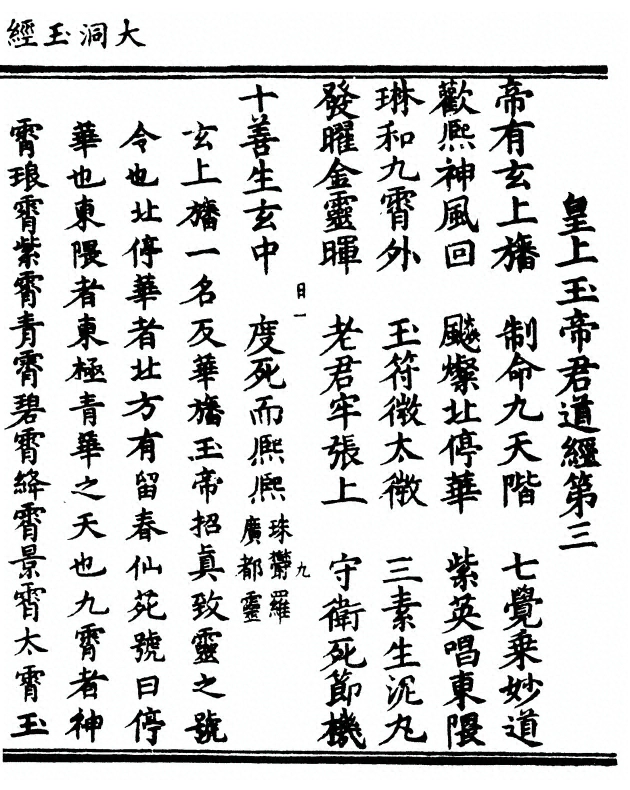 大洞玉經
皇上玉帝君道經第三
帝有玄上旛　制命九天階　七覺乗妙道
歡熈神風回　飈燦北停華　紫英唱東隈
琳和九霄外　玉符徴太微　三素生泥丸
發曜金靈暉　老君牢張上　守衛死節機
十善生玄中　日一　度死而熈熈　珠欝羅九廣都靈
玄上旛一名反華旛玉帝招眞致靈之號
令也北停華者北方有留春仙苑號曰停
華也東隈者東極青華之天也九霄者神
霄琅霄紫霄青霄碧霄絳霄景霄太霄玉